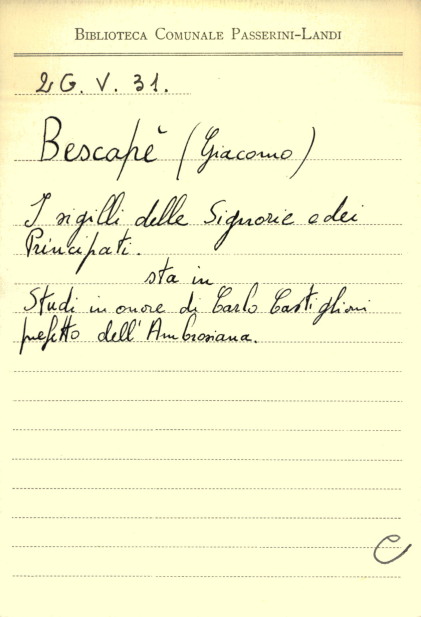 BIBLIOTECA COMUNALE PASSERINI-LANDI
2 G. V. 31.
Bescapè (Giacomo)
I sigilli delle Signorie e dei
Principati.
sta in
Studi in onore di Carlo Castiglioni
prefetto dell'Ambrosiana.
C